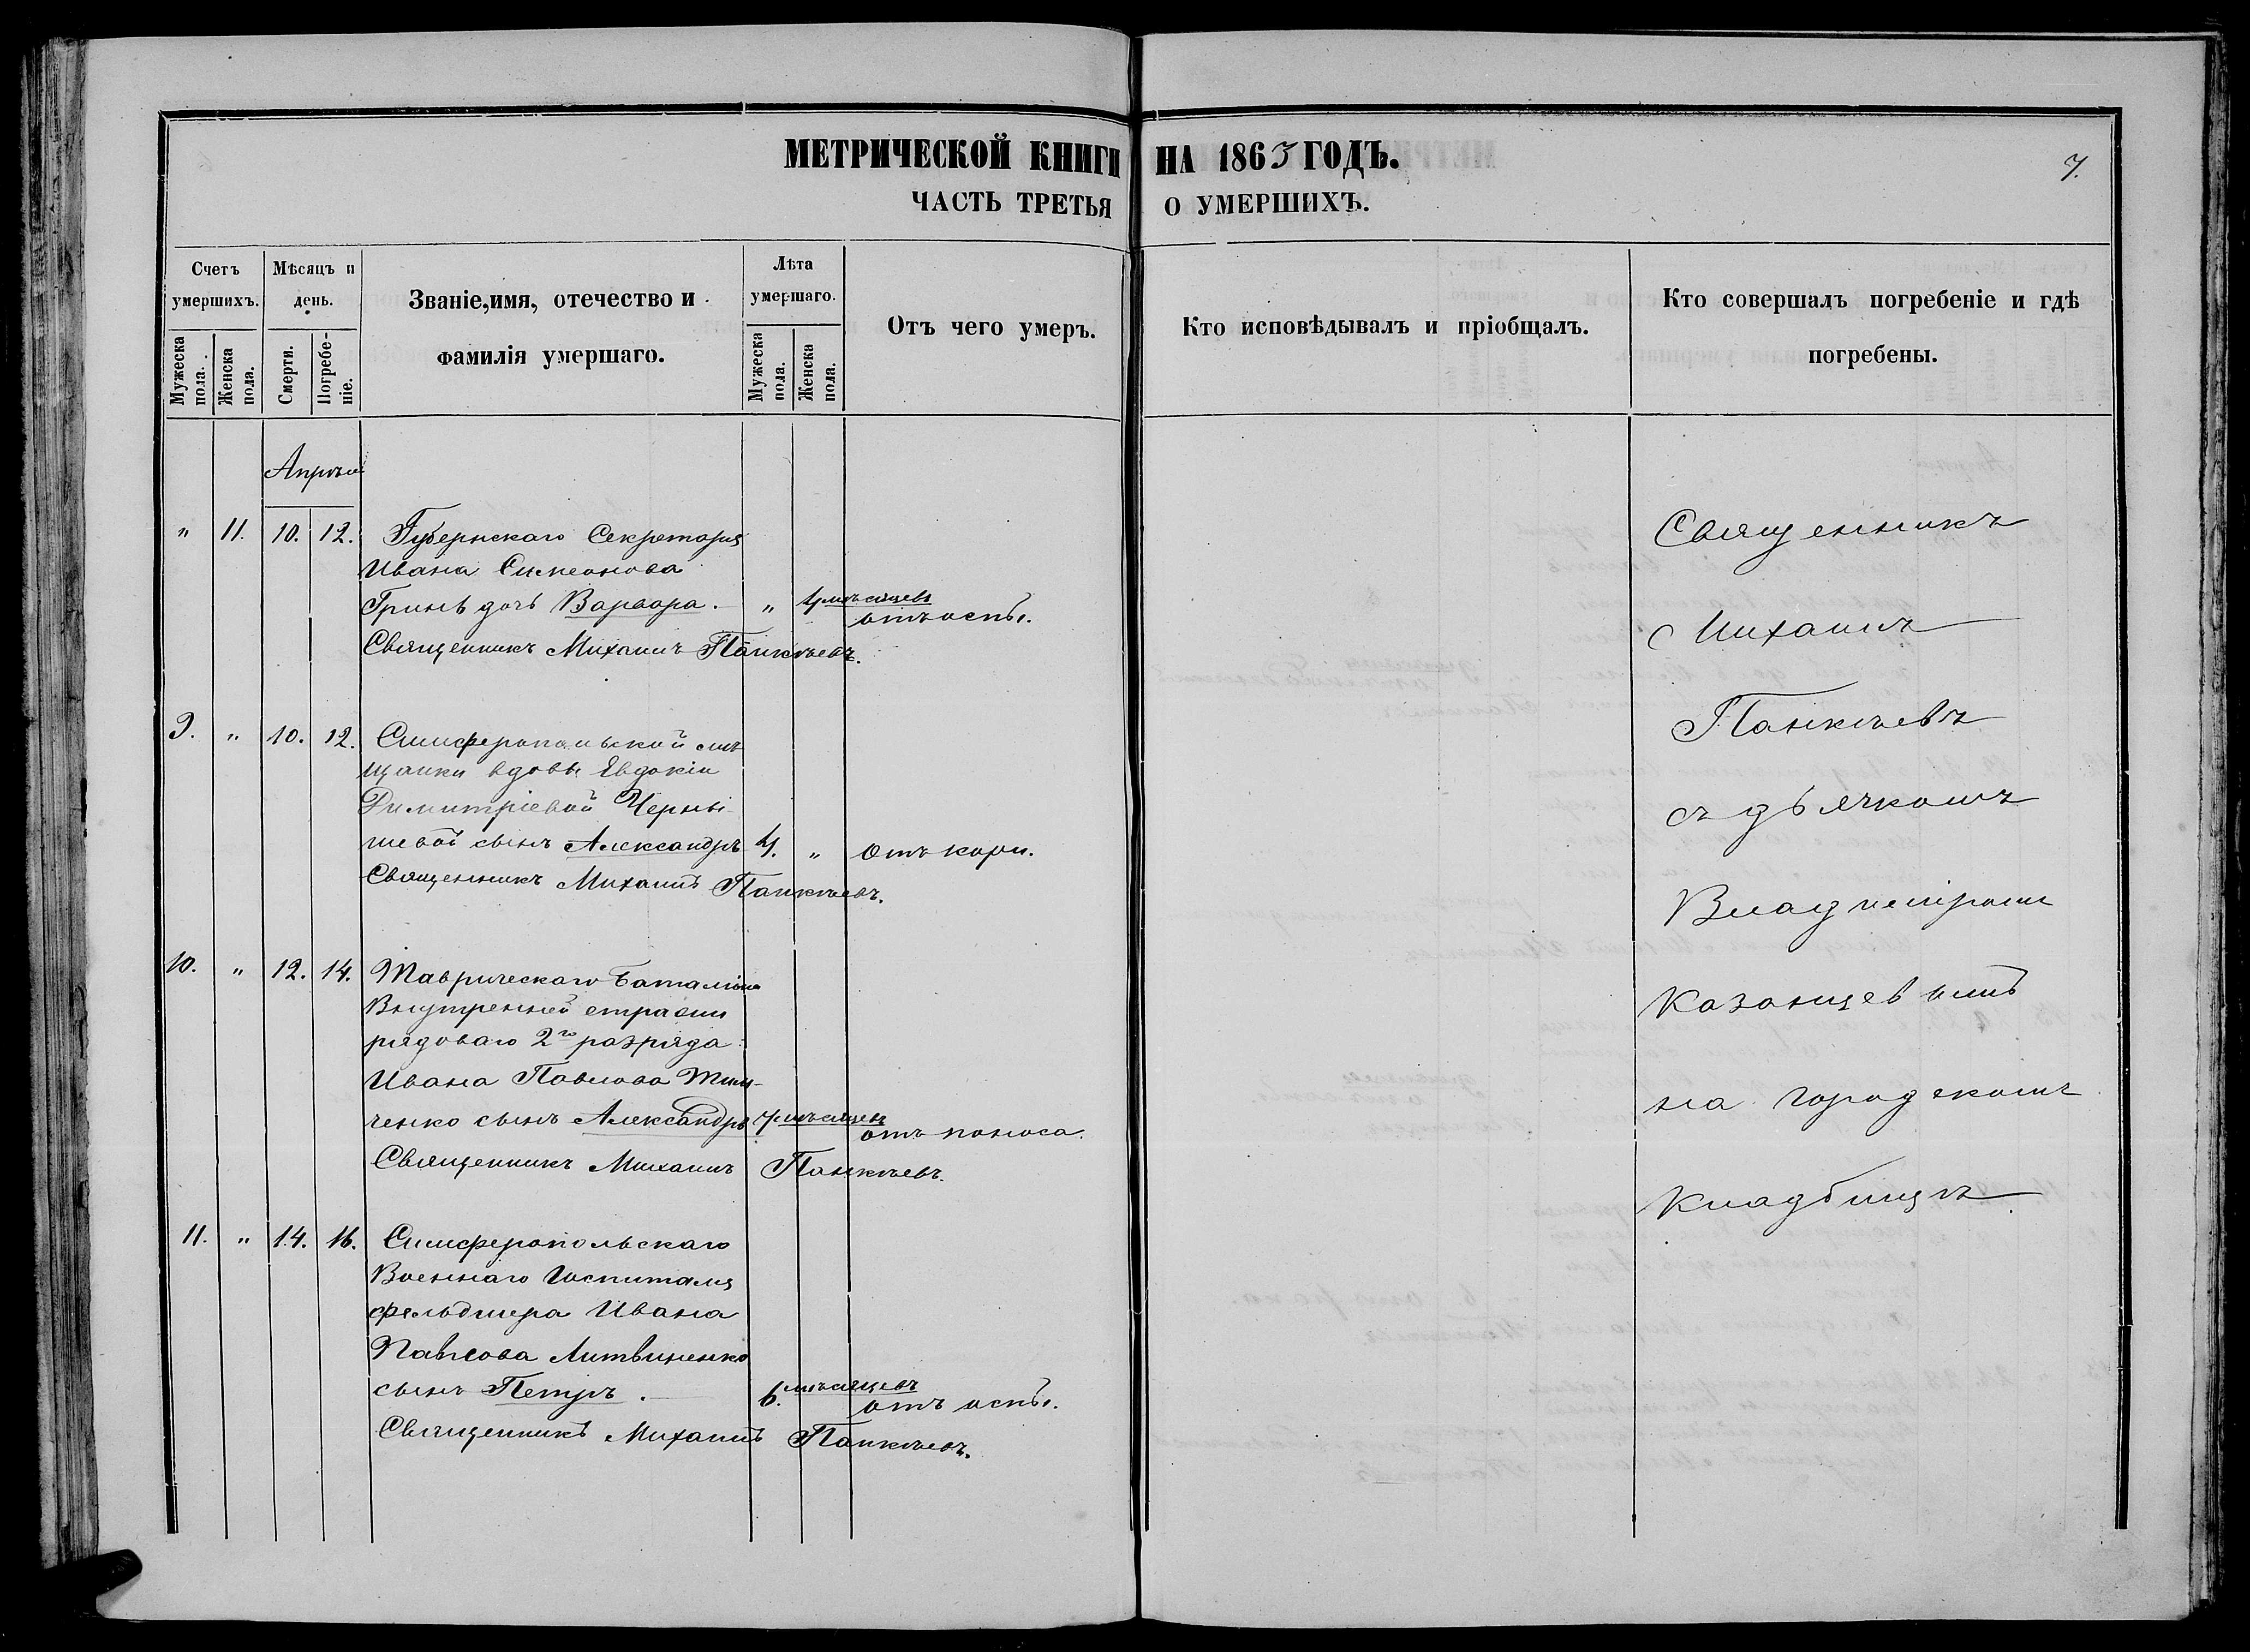 МЕТРИЧЕСКОЙ КНИГИ НА 1863 ГОДЪ.
7.
ЧАСТЬ ТРЕТЬЯ О УМЕРШИХЪ.
Счетъ умершихъ.
Мужеска пола.
Женска пола.
Мѣсяцъ и день.
Смерти.
Погребеніе.
Званіе, имя, отечество и фамилія умершаго.
Лѣта умершаго.
Мужеска пола.
Женска пола.
Отъ чего умеръ.
Кто исповѣдывалъ и пріобщалъ.
Кто совершалъ погребеніе и гдѣ погребены.
Апрѣль
" 11. 10. 12. Губернскаго Секретаря
Ивана Симеонова
Гринь дочь Варвара. " 4 мѣсяцевъ отъ оспы.
Священникъ Михаилъ Панкѣевъ.
9. " 10. 12. Симферопольской мѣ
щанки вдовы Евдокіи
Димитріевой Черны-
шевой сынъ Александръ 4. " Отъ кори.
Священникъ Михаилъ Панкѣевъ.
10. " 12. 14. Таврическаго Баталіона
Внутренней стражи
рядоваго 2го разряда
Ивана Павлова Тим-
ченко сынъ Александръ 7 мѣсяцевъ отъ поноса.
Священникъ Михаилъ Панкѣевъ.
11. " 14. 16. Симферопольскаго
Военнаго Госпиталя
фельдшера Ивана
Павлова Литвиненко
сынъ Петръ. 6. мѣсяцевъ отъ оспы.
Священникъ Михаилъ Панкѣевъ.
Священникъ
Михаилъ
Панкѣевъ
съ дьячкомъ
Владиміромъ
Казанцевымъ
на городскомъ
кладбищѣ